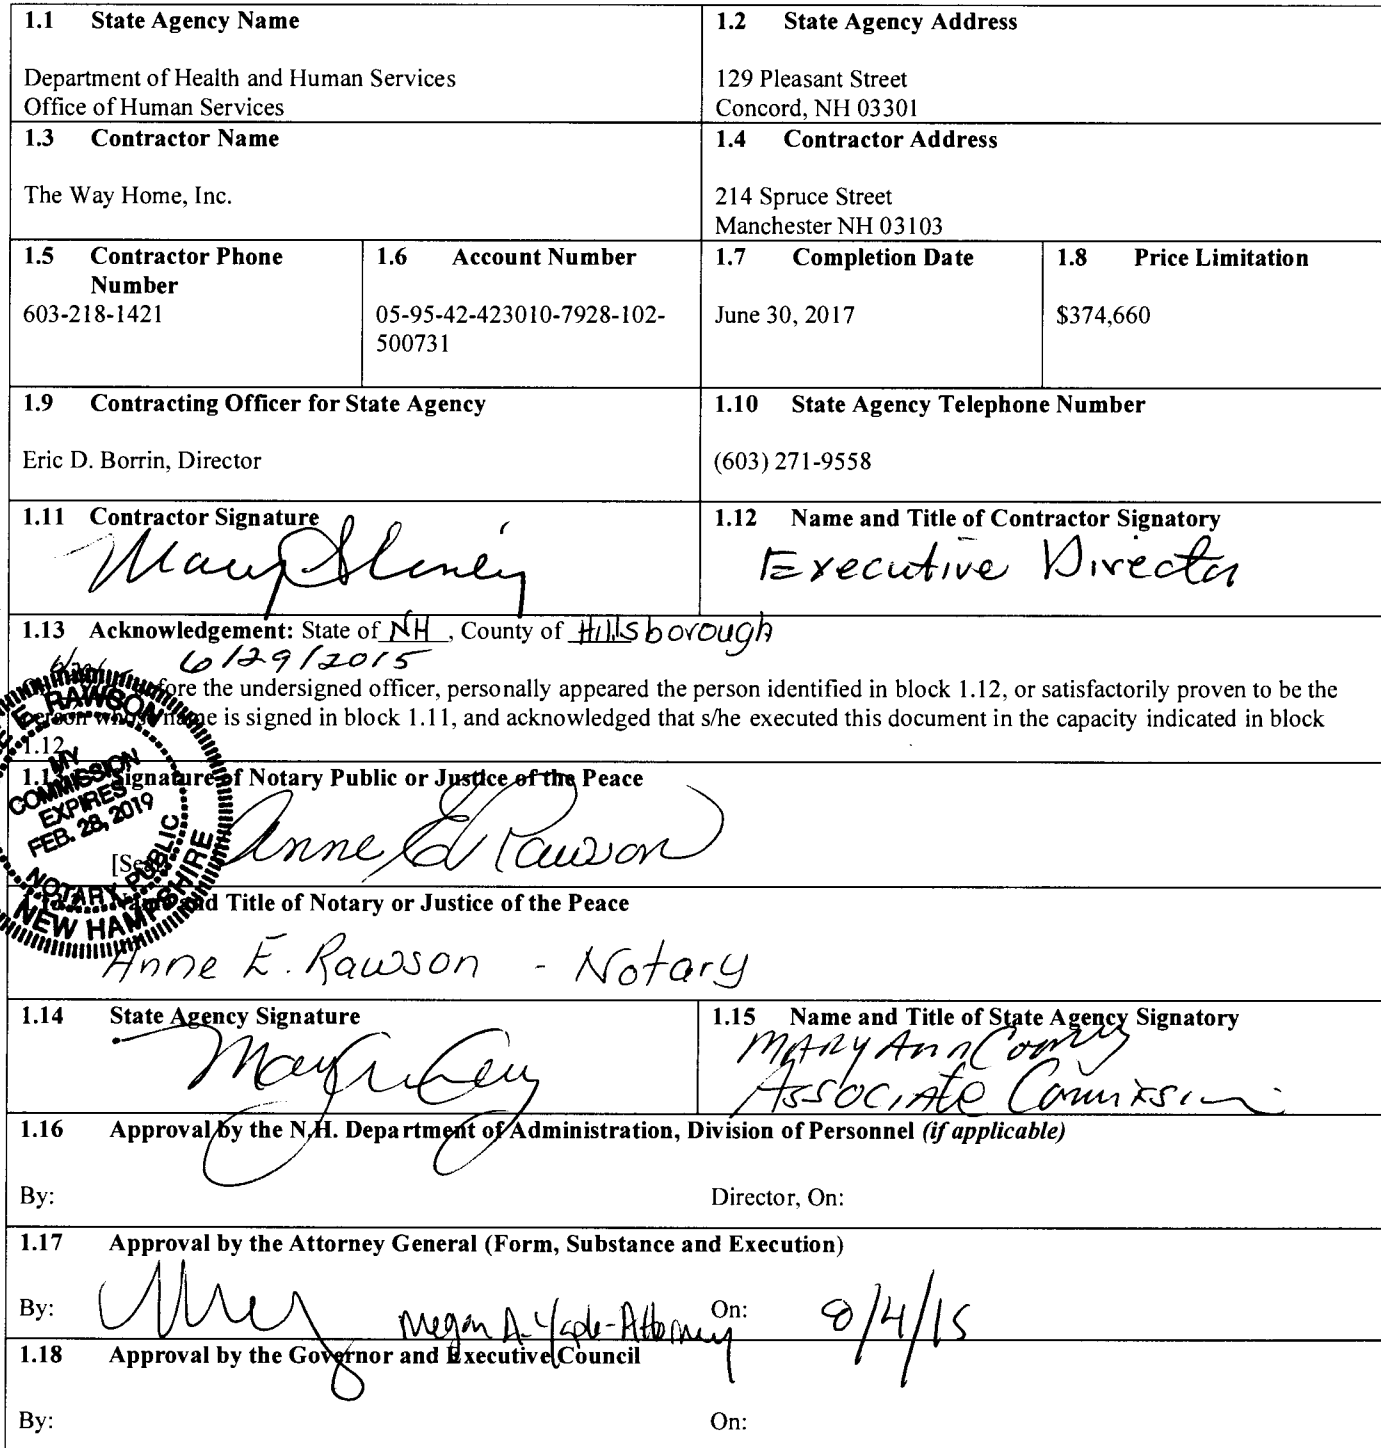 1.1 State Agency Name
Department of Health and Human Services
Office of Human Services
1.2 State Agency Address
129 Pleasant Street
Concord, NH 03301
1.3 Contractor Name
The Way Home, Inc.
1.4 Contractor Address
214 Spruce Street
Manchester NH 03103
1.5 Contractor Phone
Number
603-218-1421
1.6 Account Number
05-95-42-423010-7928-102-
500731
1.7 Completion Date
June 30, 2017
1.8 Price Limitation
$374,660
1.9 Contracting Officer for State Agency
Eric D. Borrin, Director
1.10 State Agency Telephone Number
(603) 271-9558
1.11 Contractor Signature
Mary
1.12 Name and Title of Contractor Signatory
Executive Director
1.13 Acknowledgement: State of NH, County of Hillsborough
6/29/2015
before the undersigned officer, personally appeared the person identified in block 1.12, or satisfactorily proven to be the
name is signed in block 1.11, and acknowledged that s/he executed this document in the capacity indicated in block
1.12
E. RAWSON
MY
COMMISSION
EXPIRES
FEB. 28, 2019
NOTARY PUBLIC
NEW HAMPSHIRE
Signature of Notary Public or Justice of the Peace
Anne E Rawson
and Title of Notary or Justice of the Peace
Anne E. Rawson - Notary
1.14 State Agency Signature
1.15 Name and Title of State Agency Signatory
Mary Ann Cooney
Associate
1.16 Approval by the N.H. Department of Administration, Division of Personnel (if applicable)
By: Director, On:
1.17 Approval by the Attorney General (Form, Substance and Execution)
By: Megan A. - Attorney On: 8/4/15
1.18 Approval by the Governor and Executive Council
By: On: